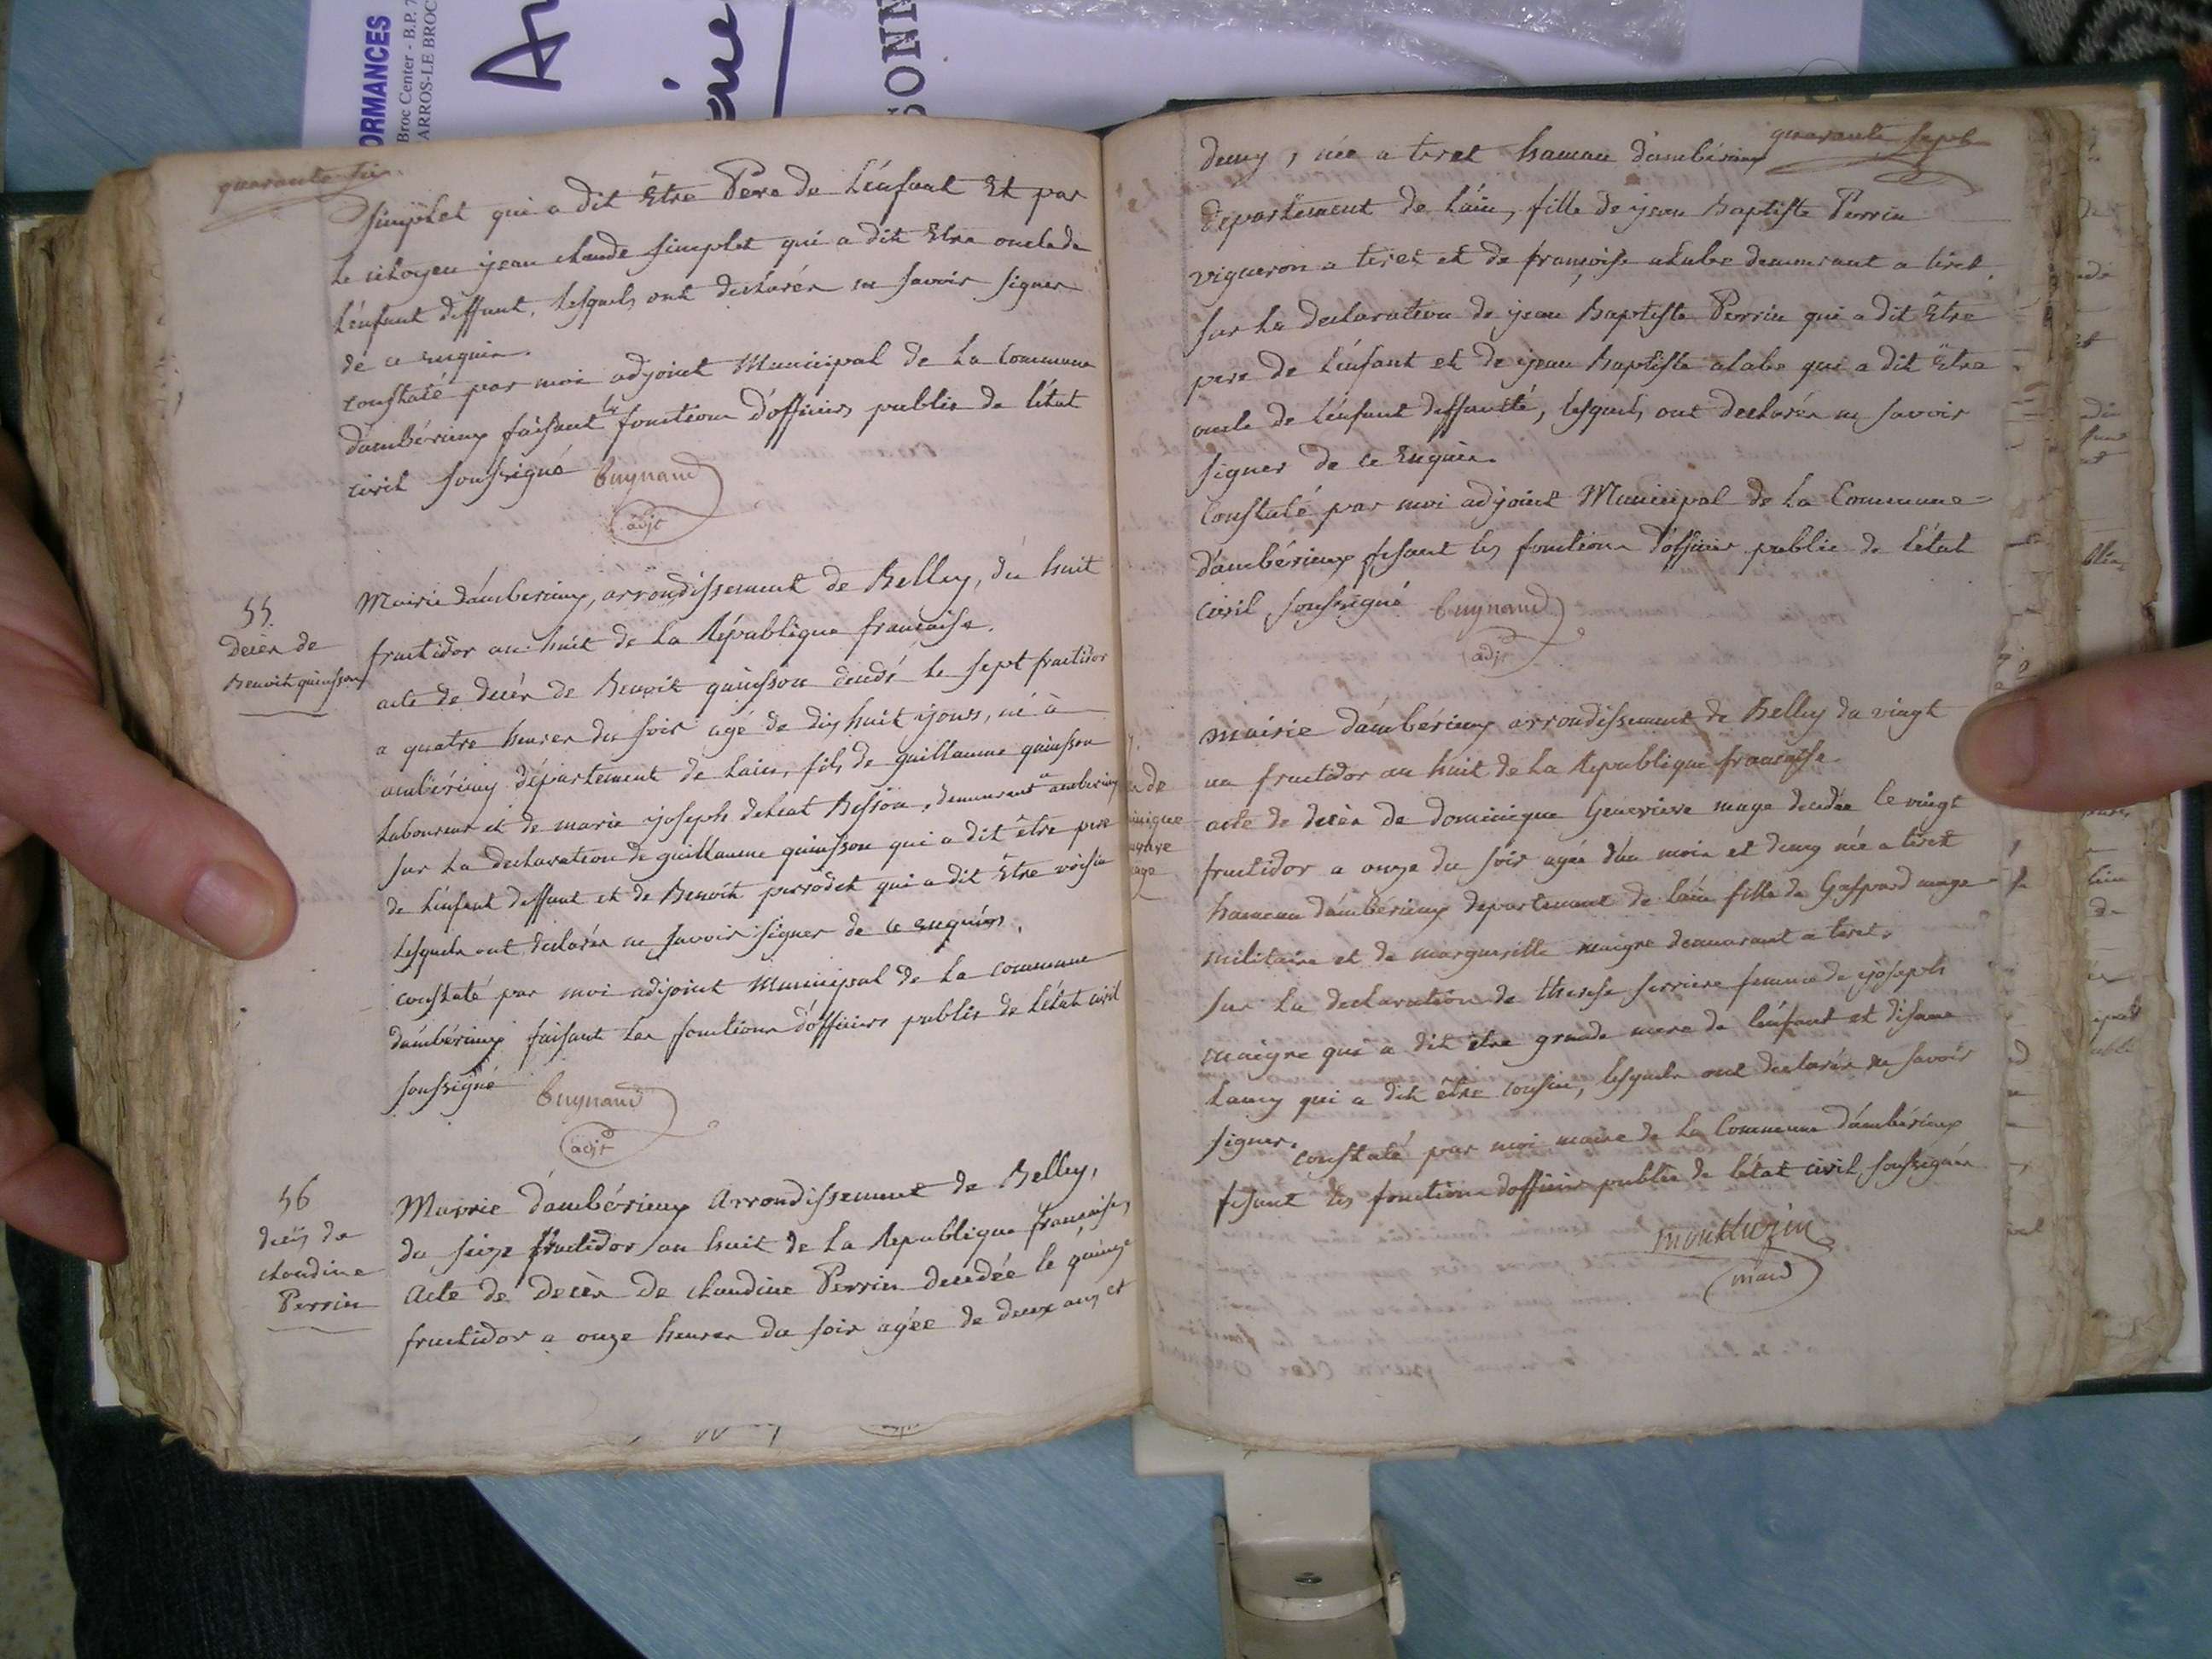 ORMANCES
Broc Center - B.P. 7
ARROS-LE BROC
SONN
quarante six
simplet qui a dit Etre Pere de L'enfant Et par
le citoyen jean claude simplet qui a dit Etre oncle de
L'enfant deffunt, lesquels ont declarés ne savoir signer
de ce enquis.
constaté par moi adjoint Municipal de La Commune
d'ambérieux faisant les fonctions d'officier public de l'état
civil soussigné
buynand
adjt
55.
Decès de
Benoit quinsson
Mairie d'amberieux, arrondissement de Belley, du huit
fructidor an huit de La République française.
acte de decès de Benoit quinsson decedé le sept fructidor
a quatre heures du soir agé de dix huit jours, né à
ambérieux département de Lain, fils de guillaume quinsson
Laboureur et de marie joseph Besson, demeurant a amberieux
sur La declaration de guillaume quinsson qui a dit être pere
de L'enfant deffunt et de Benoit perrodet qui a dit Etre voisin
Lesquels ont declarés ne savoir signer de ce enquis.
constaté par moi adjoint Municipal de La commune
d'ambérieux faisant les fonctions d'officier public de L'état civil
soussigné
buynand
adjt
56
decès de
claudine
Perrin
Mairie d'ambérieux Arrondissement de Belley,
du seize fructidor an huit de La Republique française,
Acte de Decès De claudine Perrin decedée le quinze
fructidor a onze heures du soir agée de deux ans et
quarante sept
demy, née a tiret hameau d'ambérieux
departement de L'ain, fille de jean Baptiste Perrin
vigneron a tiret et de françoise alabe demeurant a tiret.
sur La declaration de jean Baptiste Perrin qui a dit Etre
pere de L'enfant et de jean baptiste alabe qui a dit Etre
oncle de L'enfant deffunté, lesquels ont declarés ne savoir
signer de ce Enquis.
Constaté par moi adjoint Municipal de La Commune
d'ambérieux fesant les fonctions d'officier public de l'état
civil soussigné
buynand
adjt
mairie d'ambérieux arrondissement de Belley du vingt
un fructidor an huit de La Republique française.
acte de decès de dominique Genevieve mage decedée le vingt
fructidor a onze du soir agée d'un mois et demy née a tiret
hameau d'ambérieux departement de L'ain fille de Gaspard mage
militaire et de margueritte maigre demeurant a tiret.
sur La declaration de therese ferriere femme de joseph
maigre qui a dit etre grande mere de L'enfant et
qui a dit être cousin, lesquels ont declarés ne savoir
signer.
constaté par moi maire de La Commune d'ambérieux
fesant les fonctions d'officier public de l'état civil soussigné
montluzin